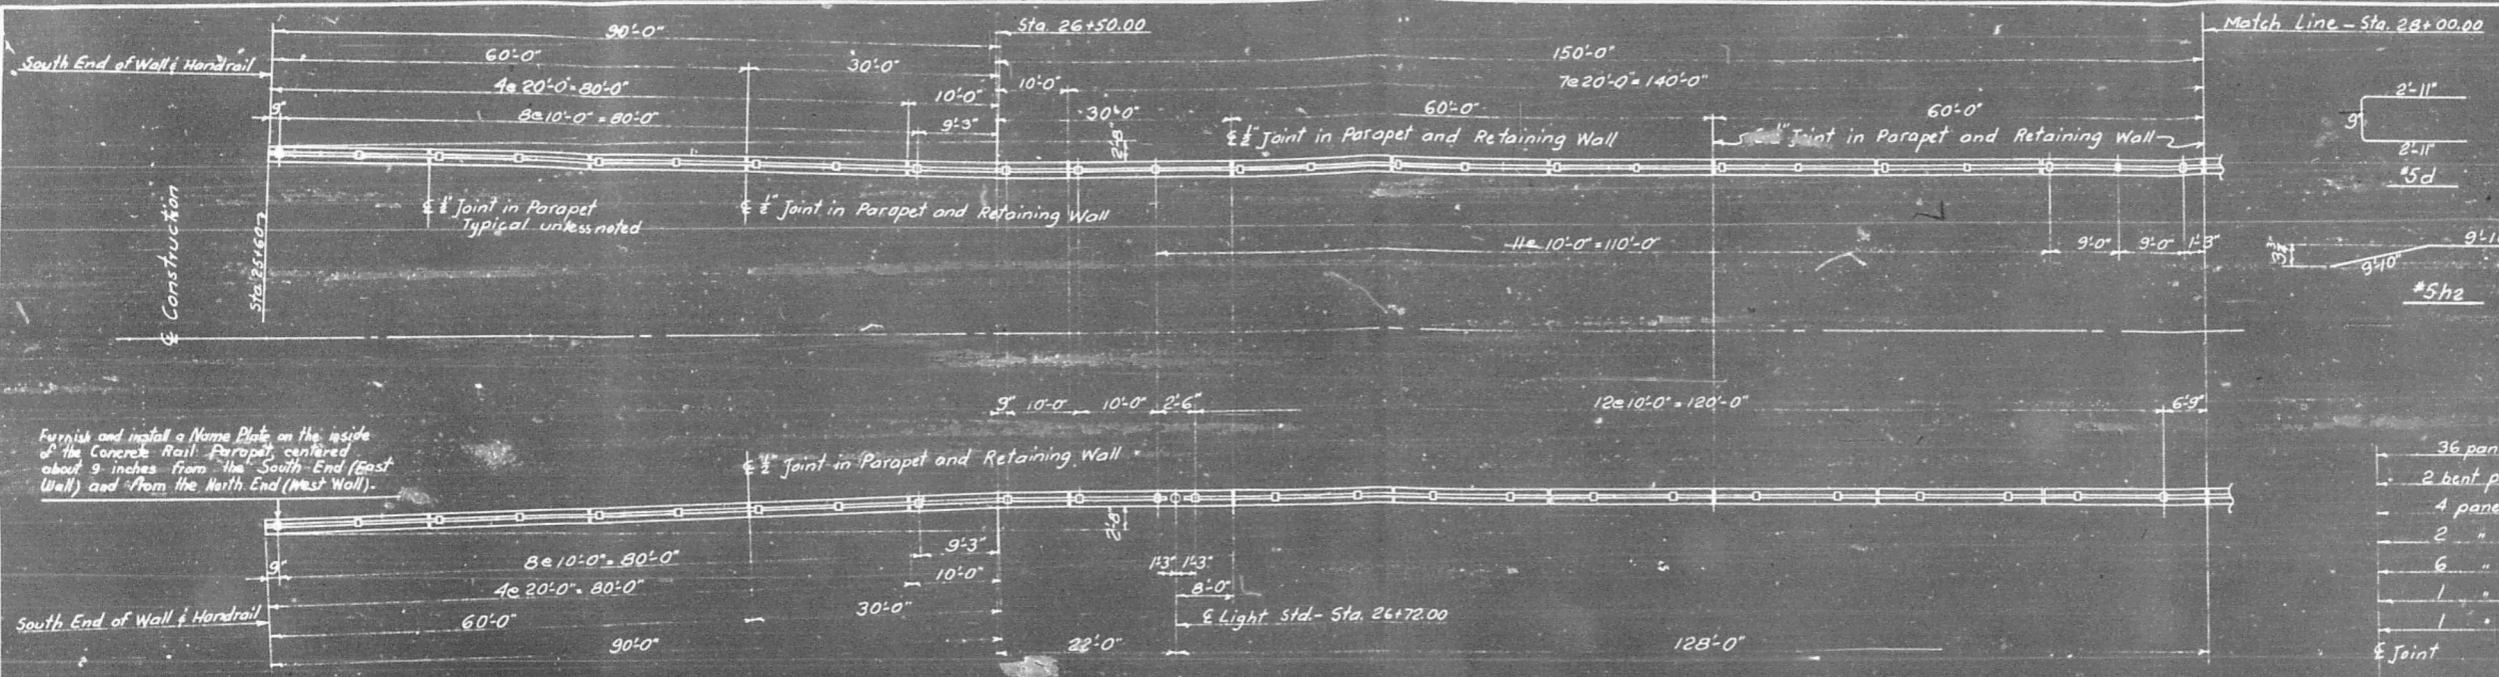 Sta. 26+50.00
Match Line - Sta. 28+00.00
90'-0"
South End of Wall & Handrail
60'-0"
30'-0"
150'-0"
4@ 20'-0" = 80'-0"
10'-0"
10'-0"
7@ 20'-0" = 140'-0"
9"
8@ 10'-0" = 80'-0"
9'-3"
30'-0"
60'-0"
60'-0"
2'-11"
9"
2'-11"
#5d
2'-8"
℄ ½" Joint in Parapet and Retaining Wall
Joint in Parapet and Retaining Wall
℄ ½" Joint in Parapet
Typical unless noted
℄ ½" Joint in Parapet and Retaining Wall
℄ Construction
Sta. 25+60
11@ 10'-0" = 110'-0"
9'-0" 9'-0" 1'-3"
9'-10"
#5h2
9" 10'-0" 10'-0" 2'-6"
12@ 10'-0" = 120'-0"
6'-9"
Furnish and install a Name Plate on the inside
of the Concrete Rail Parapet, centered
about 9 inches from the South End (East
Wall) and from the North End (West Wall).
℄ ½" Joint in Parapet and Retaining Wall
36
2 bent
4
2 "
6 "
1 "
1 "
℄ Joint
2'-8"
9'-3"
9"
8@ 10'-0" = 80'-0"
10'-0"
1'-3" 1'-3"
4@ 20'-0" = 80'-0"
8'-0"
South End of Wall & Handrail
60'-0"
30'-0"
℄ Light Std. - Sta. 26+72.00
90'-0"
22'-0"
128'-0"